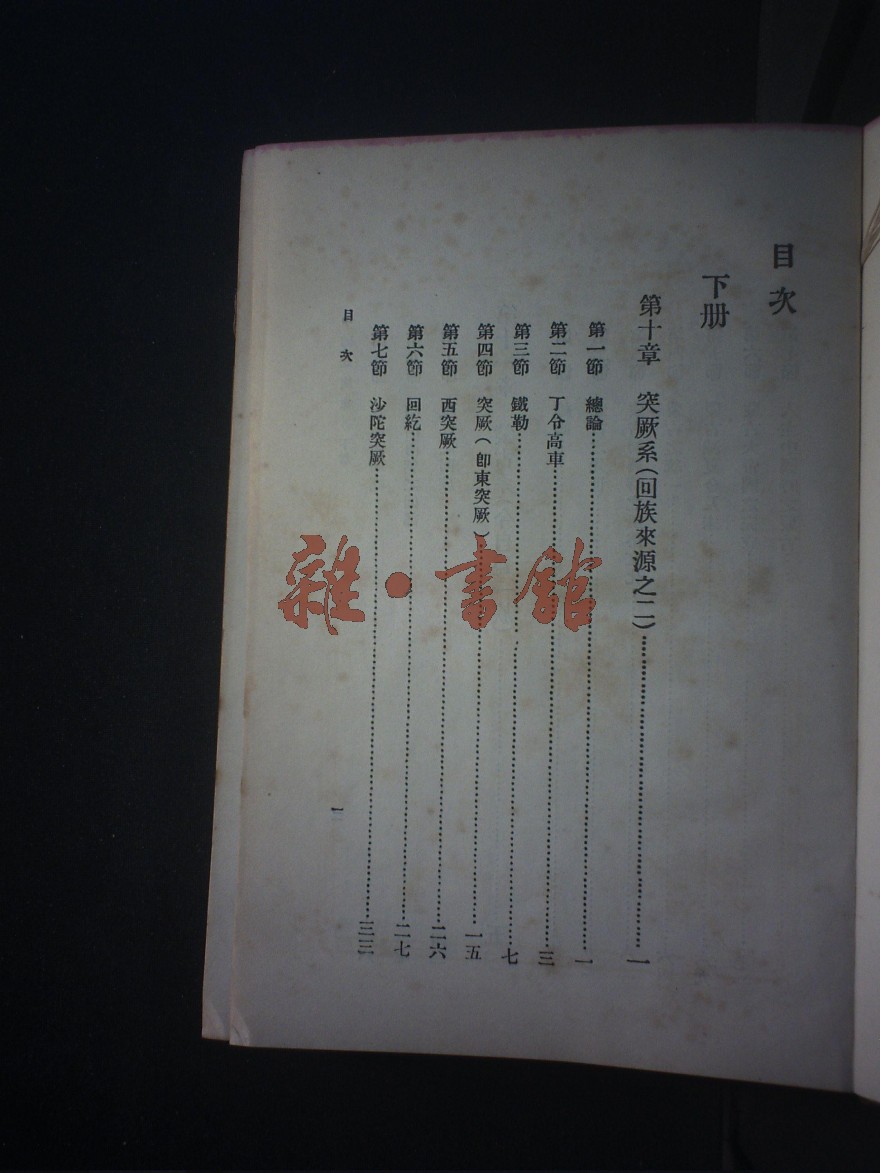 目次
下册
第十章 突厥系(回族來源之二)……一
第一節 總論……一
第二節 丁令高車……三
第三節 鐵勒……七
第四節 突厥(卽東突厥)……一五
第五節 西突厥……二六
第六節 回紇……二七
第七節 沙陀突厥……三三
目次 一
雜·書館